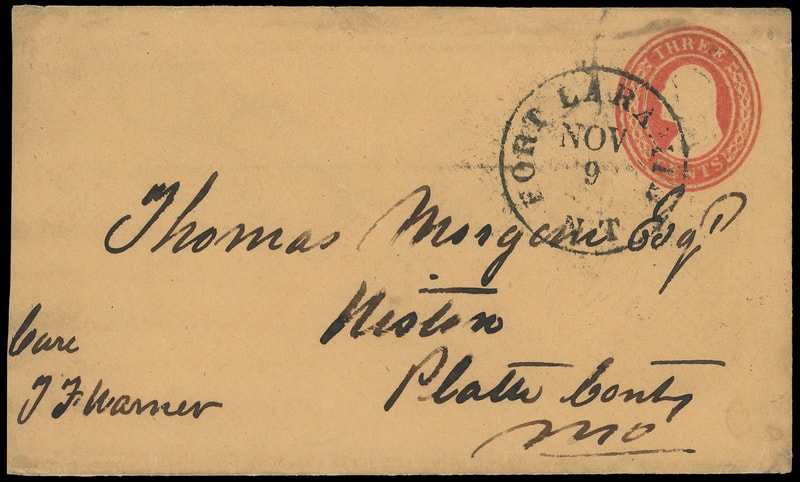 THREE
CENTS
FORT LARAMIE
NOV
9
N.T
Thomas Morgan Esqr
Weston
Platte Conty
Mo
Care
J F Warner